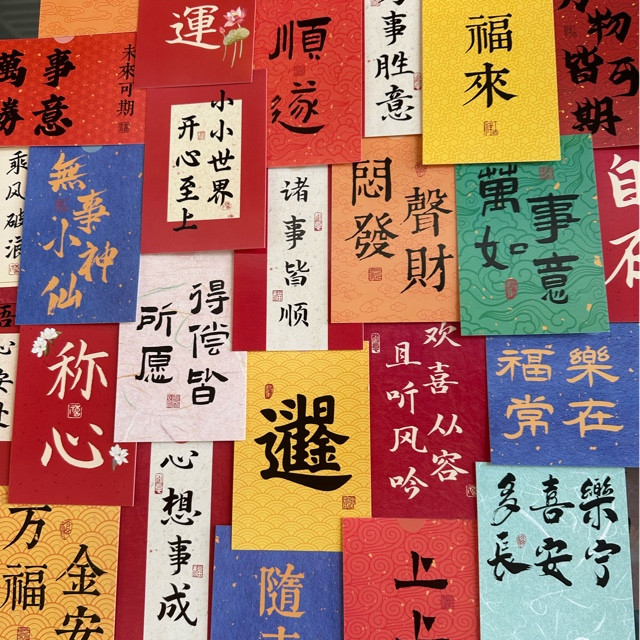 運
順遂
事胜意
福來
萬事
勝意
未來可期
物可
皆期
小小世界
开心至上
乘风破浪
無事
小神仙
诸事皆顺
悶聲
發財
萬事
如意
得偿皆
所愿
称心
日進
金
欢喜从容
且听风吟
樂在
福常
樂宁
喜安
多長
心想事成
万福
金安
隨
上上